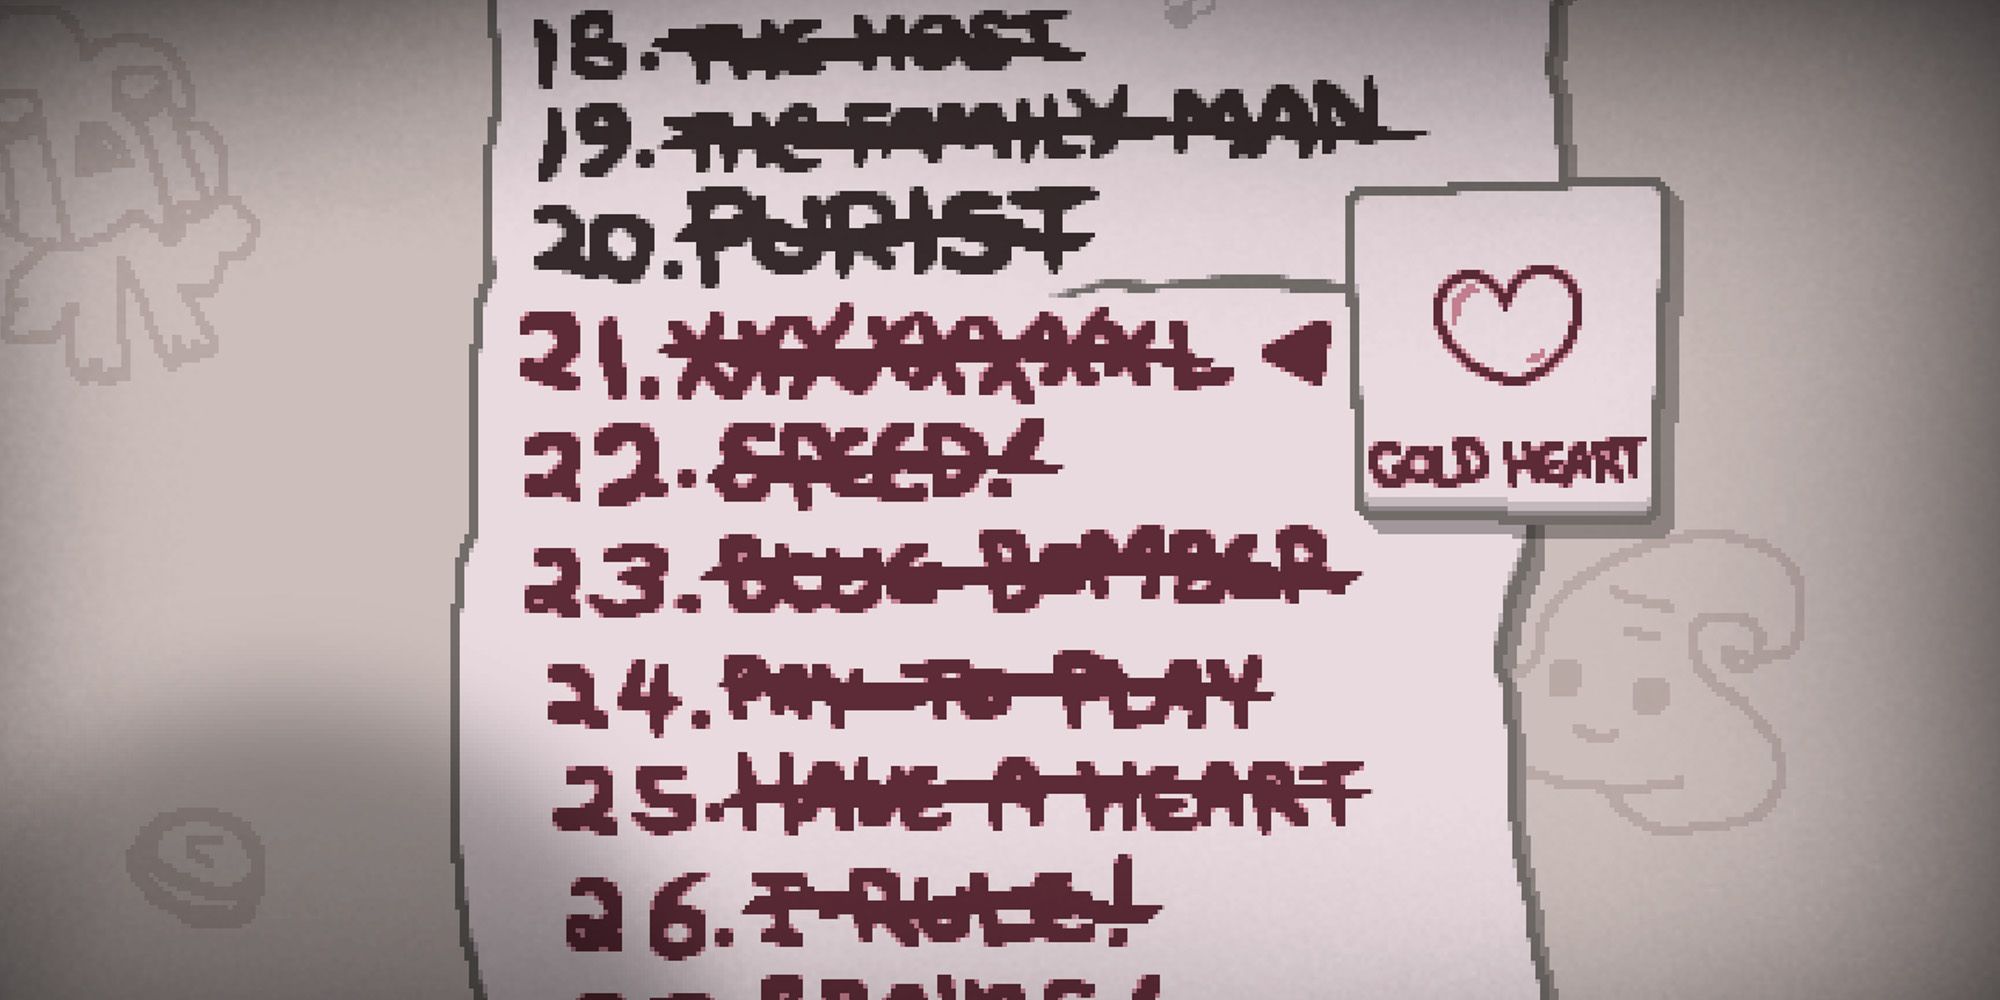 18. THE HOST
19. THE FAMILY MAN
20. PURIST
21. XXXXXXXXL
22. SPEED!
23. BLUE BOMBER
24. PAY TO PLAY
25. HAVE A HEART
26. I RULE!
27. BRAINS!
GOLD HEART